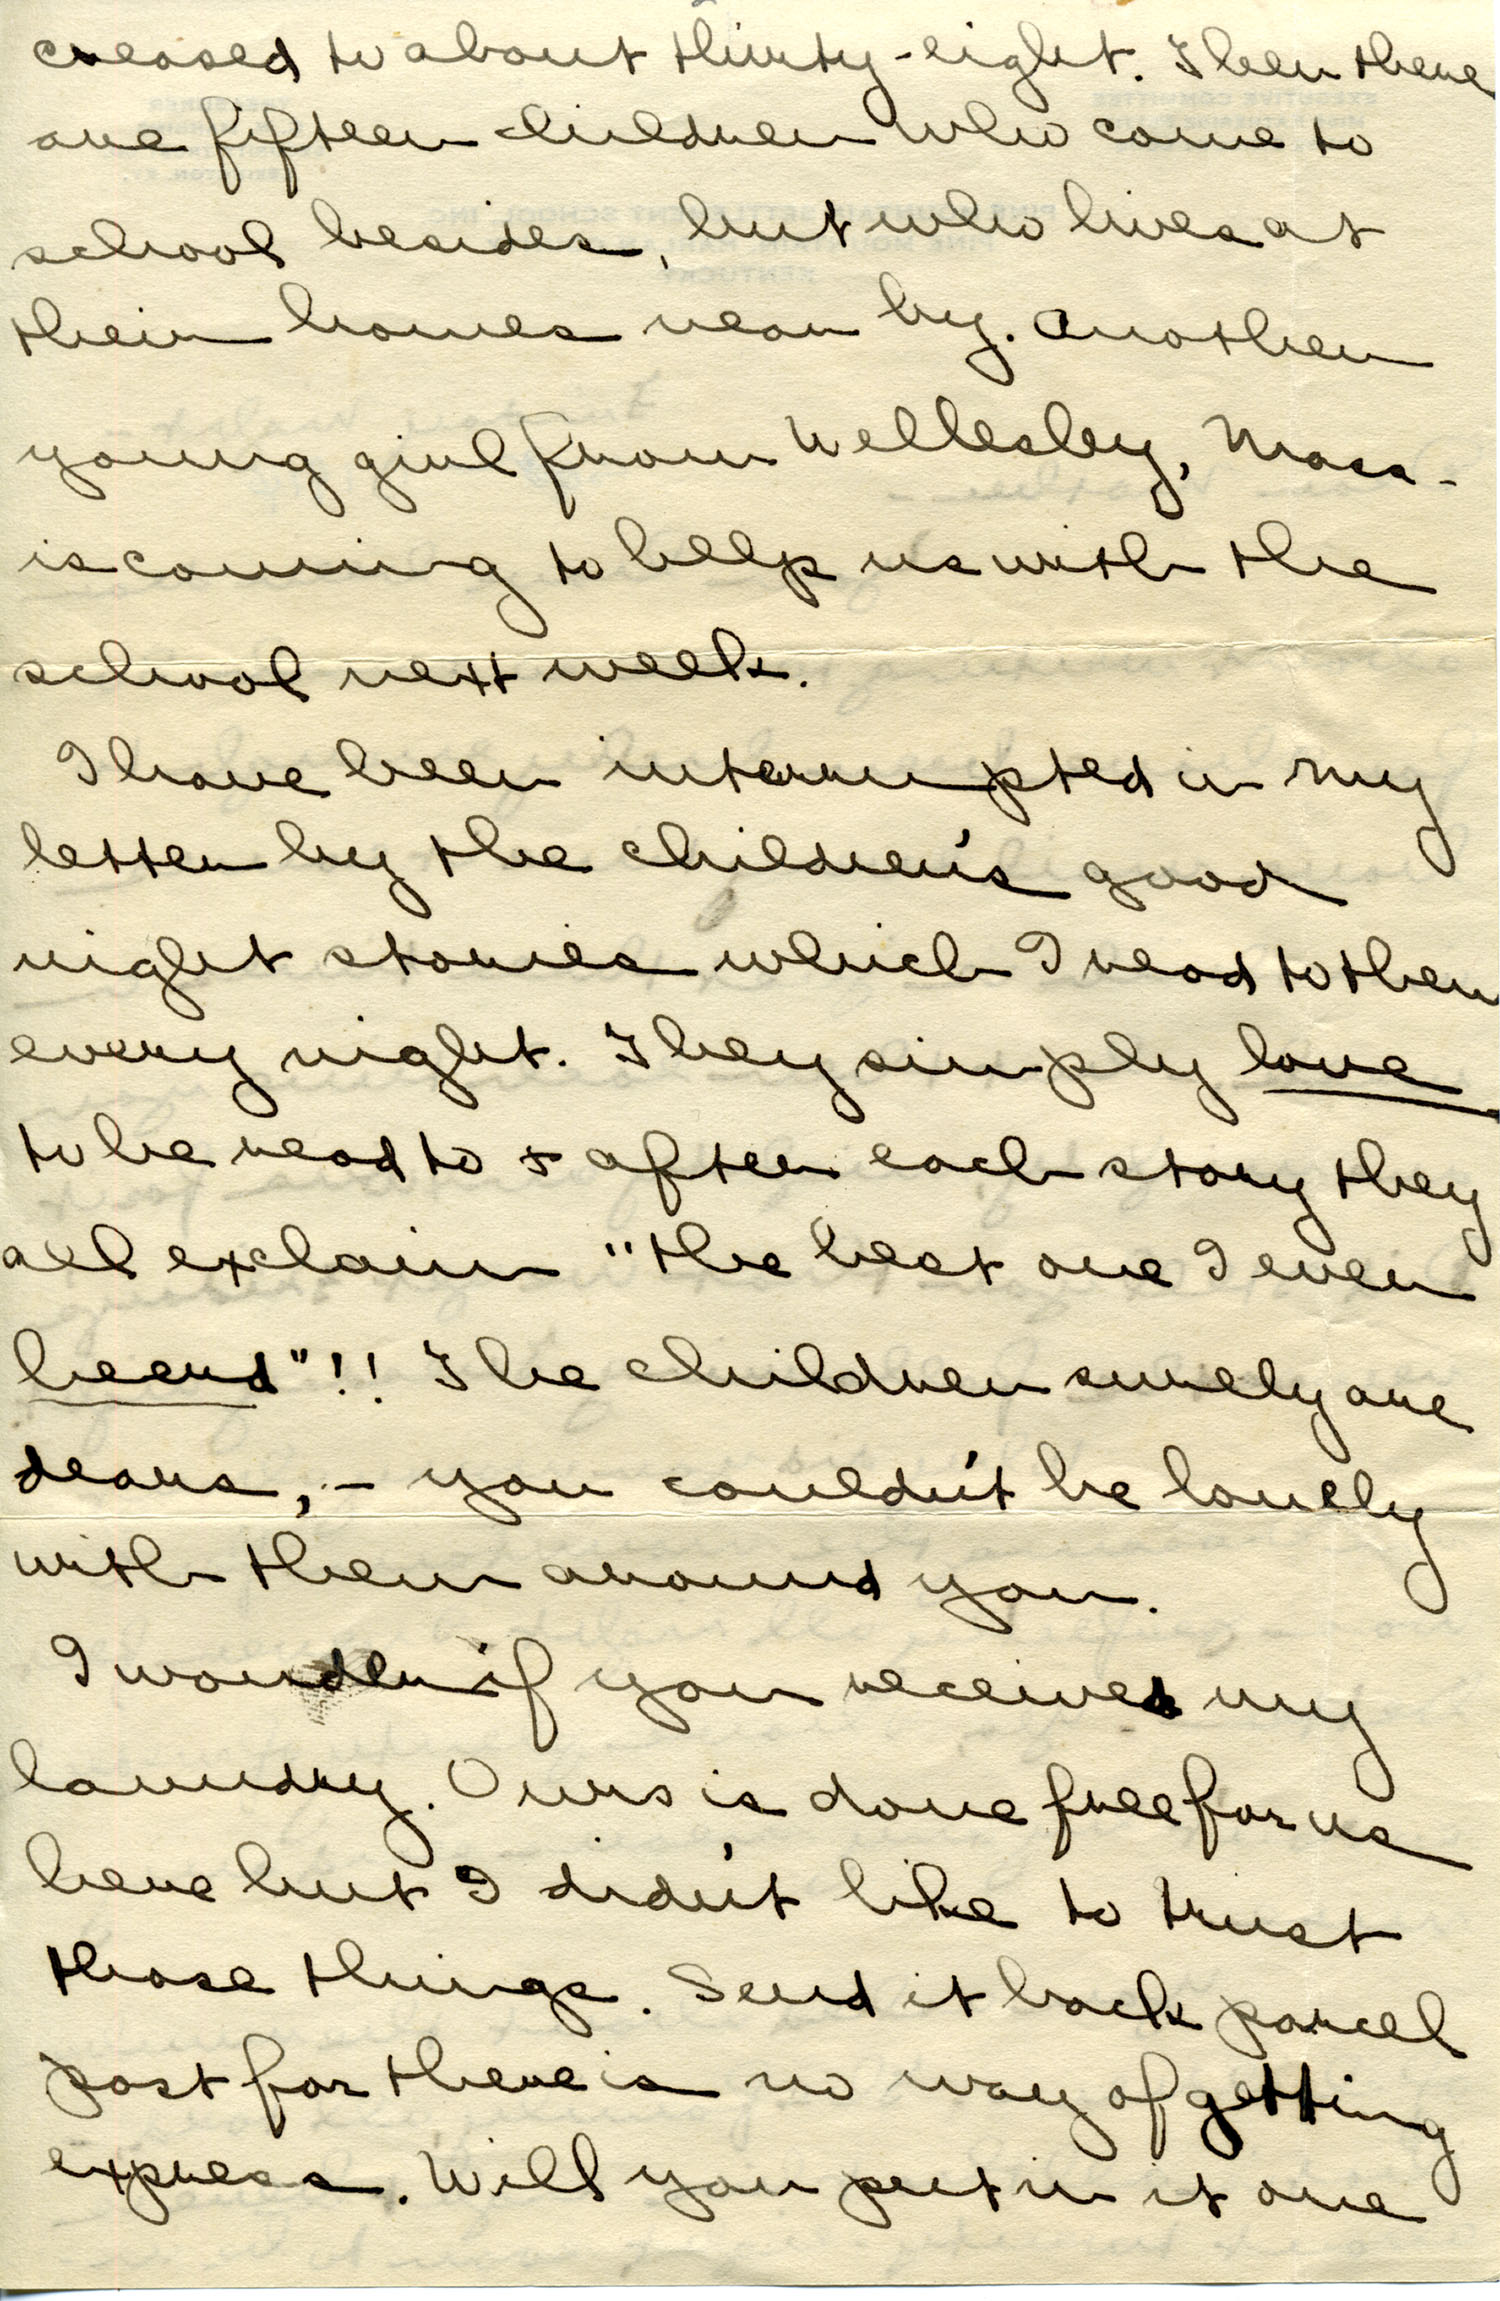 creased to about thirty-eight. Then there
are fifteen children who come to
school besides, but who lives at
their homes near by. Another
young girl from Wellesley, Mass-
is coming to help us with the
school next week.
I have been interrupted in my
letter by the children's good
night stories which I read to them
every night. They simply love
to be read to & after each story they
all exclaim "the best one I ever
heerd"!! The children surely are
dears, - you couldn't be lonely
with them around you.
I wonder if you received my
laundry. Ours is done free for us
here but I didn't like to trust
those things. Send it back parcel
post for there is no way of getting
express. Will you put in it one